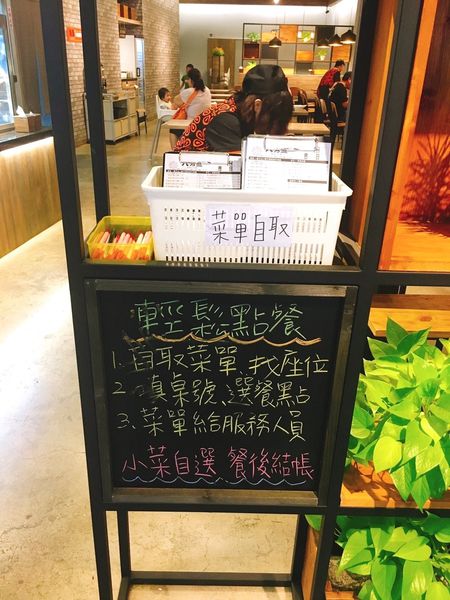 菜單自取
輕鬆點餐
1. 自取菜單、找座位
2. 填桌號、選餐點
3. 菜單給服務人員
小菜自選 餐後結帳